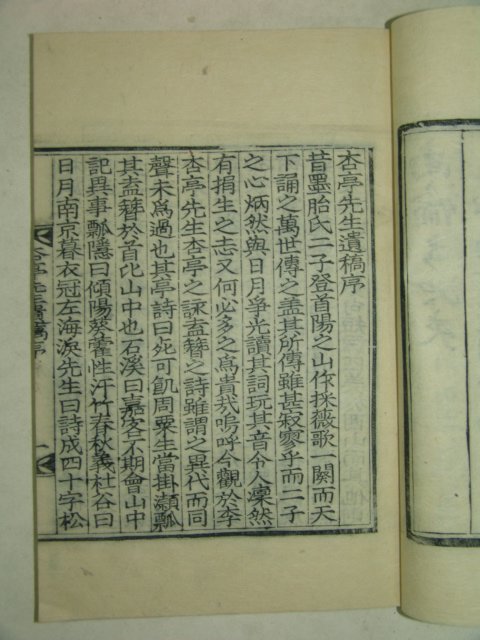 杏亭先生遺稿序
昔墨胎氏二子登首陽之山作採薇歌一闋而天
下誦之萬世傳之盖其所傳雖甚寂寥乎而二子
之心炳然與日月爭光讀其詞玩其音令人凜然
有捐生之志又何必多之爲貴哉嗚呼今觀於李
杏亭先生杏亭之詠盍簪之詩雖謂之異代而同
聲未爲過也其亭詩曰死可飢周粟生當掛潁瓢
其盍簪於首比山中也石溪曰嘉客不期會山中
記異事瓢隱曰傾陽葵藿性汗竹春秋義杜谷曰
日月南京暮衣冠左海淚先生曰詩成四十字松
杏亭先生遺稿序
一